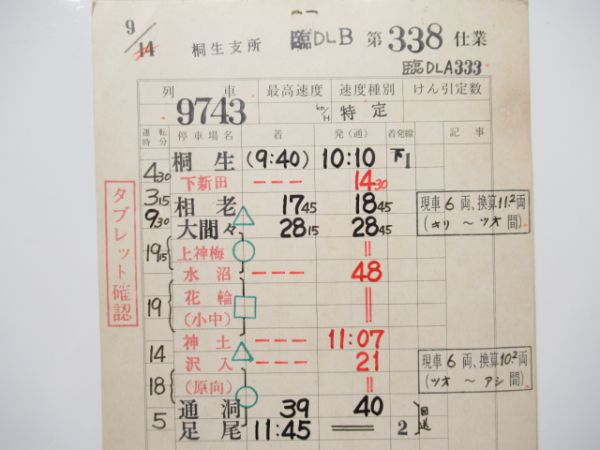 9/14 桐生支所 臨DLB 第338仕業
臨DLA333
列車 最高速度 速度種別 けん引定数
9743 km/H 特定
運転時分 停車場名 着 発(通) 着発線 記事
桐生 (9:40) 10:10 下1
4 30
下新田 --- 14 30
3 15
相老 17 45 18 45
現車6両、換算11.2両
(キリ～ツオ間)
9 30
大間々 28 15 28 45
上神梅 ||
19 15
水沼 --- 48
花輪 ||
19
(小中)
神土 --- 11:07
14
沢入 --- 21
現車6両、換算10.2両
(ツオ～アシ間)
18
(原向) ||
通洞 39 40
5
回送
足尾 11:45 == 2
タブレット確認